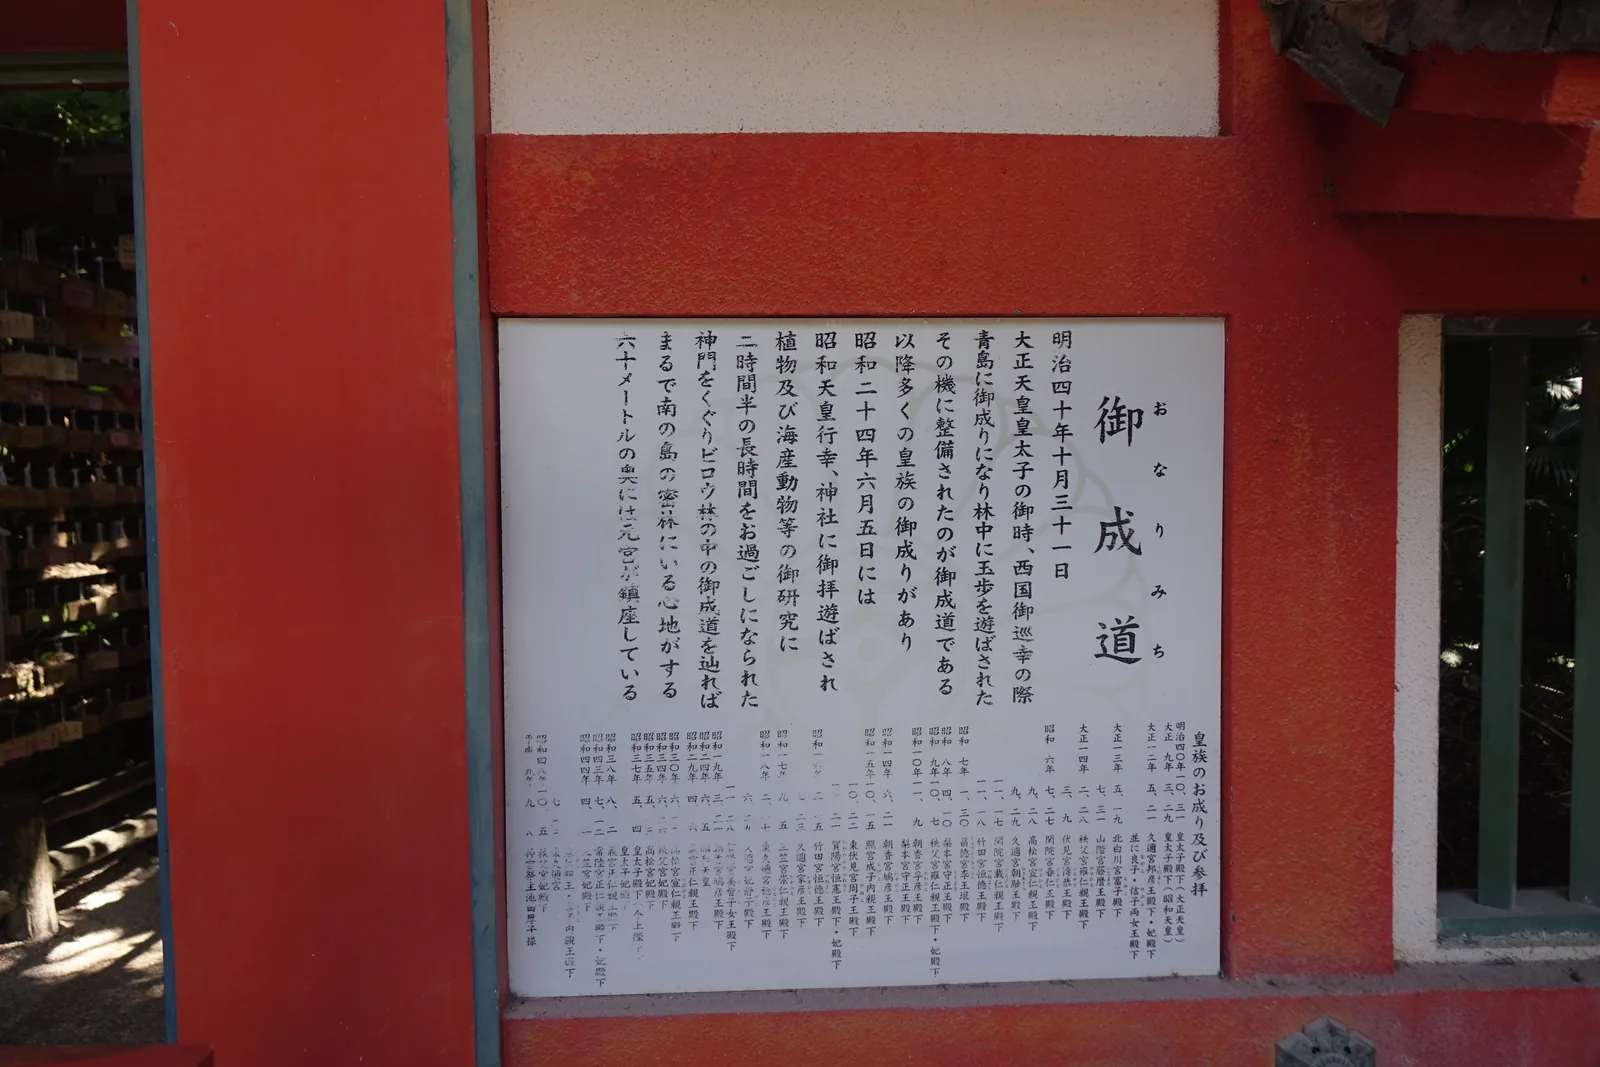 御成道
おなりみち
明治四十年十月三十一日
大正天皇皇太子の御時、西国御巡幸の際
青島に御成りになり林中に玉歩を遊ばされた
その機に整備されたのが御成道である
以降多くの皇族の御成りがあり
昭和二十四年六月五日には
昭和天皇行幸、神社に御拝遊ばされ
植物及び海産動物等の御研究に
二時間半の長時間をお過ごしになられた
神門をくぐりビロウ林の中の御成道を辿れば
まるで南の島の密林にいる心地がする
六十メートルの奥には元宮が鎮座している
皇族のお成り及び参拝
明治四〇年一〇、三一 皇太子殿下(大正天皇)
大正 九年 三、二九 皇太子殿下(昭和天皇)
大正一二年 五、二一 久邇宮邦彦王殿下・妃殿下
並に良子・信子両女王殿下
大正一三年 五、一九 北白川宮富子殿下
七、三一 山階宮藤麿王殿下
大正一四年 二、二八 秩父宮雍仁親王殿下
三、九 伏見宮博恭王殿下
昭和 六年 七、二七 閑院宮春仁王殿下
九、二八 高松宮宣仁親王殿下
九、二九 久邇宮朝融王殿下
一一、一七 閑院宮載仁親王殿下
一一、一八 竹田宮恒徳王殿下
昭和 七年 一、三〇 昌徳宮李王垠殿下
昭和 八年 四、一〇 梨本宮守正王殿下
昭和 九年一〇、七 秩父宮雍仁親王殿下・妃殿下
昭和一〇年一一、九 朝香宮孚彦王殿下
梨本宮守正王殿下
昭和一四年 六、二一 朝香宮鳩彦王殿下
昭和一五年一〇、一五 照宮成子内親王殿下
一〇、二二 東伏見宮周子王殿下
賀陽宮恒憲王殿下・妃殿下
竹田宮恒徳王殿下
久邇宮家彦王殿下
昭和一七年 九、五 三笠宮崇仁親王殿下
昭和一八年 二、
昭和一九年 三、
昭和二四年 六、五 昭和天皇
昭和二九年 四、 宮正仁親王殿下
昭和三〇年 六、 高松宮宣仁親王殿下
昭和三四年 六、 秩父宮妃殿下
昭和三五年 五、 高松宮妃殿下
昭和三七年 五、四 皇太子殿下
皇太子妃殿下
昭和三八年 八、二 義宮正仁親王殿下
昭和四三年 七、一二 常陸宮正仁親王殿下・妃殿下
昭和四四年 四、一 三笠宮妃殿下
昭和四八年一〇、五 秩父宮妃殿下
平成 九年 九、八 神宮祭主池田厚子様